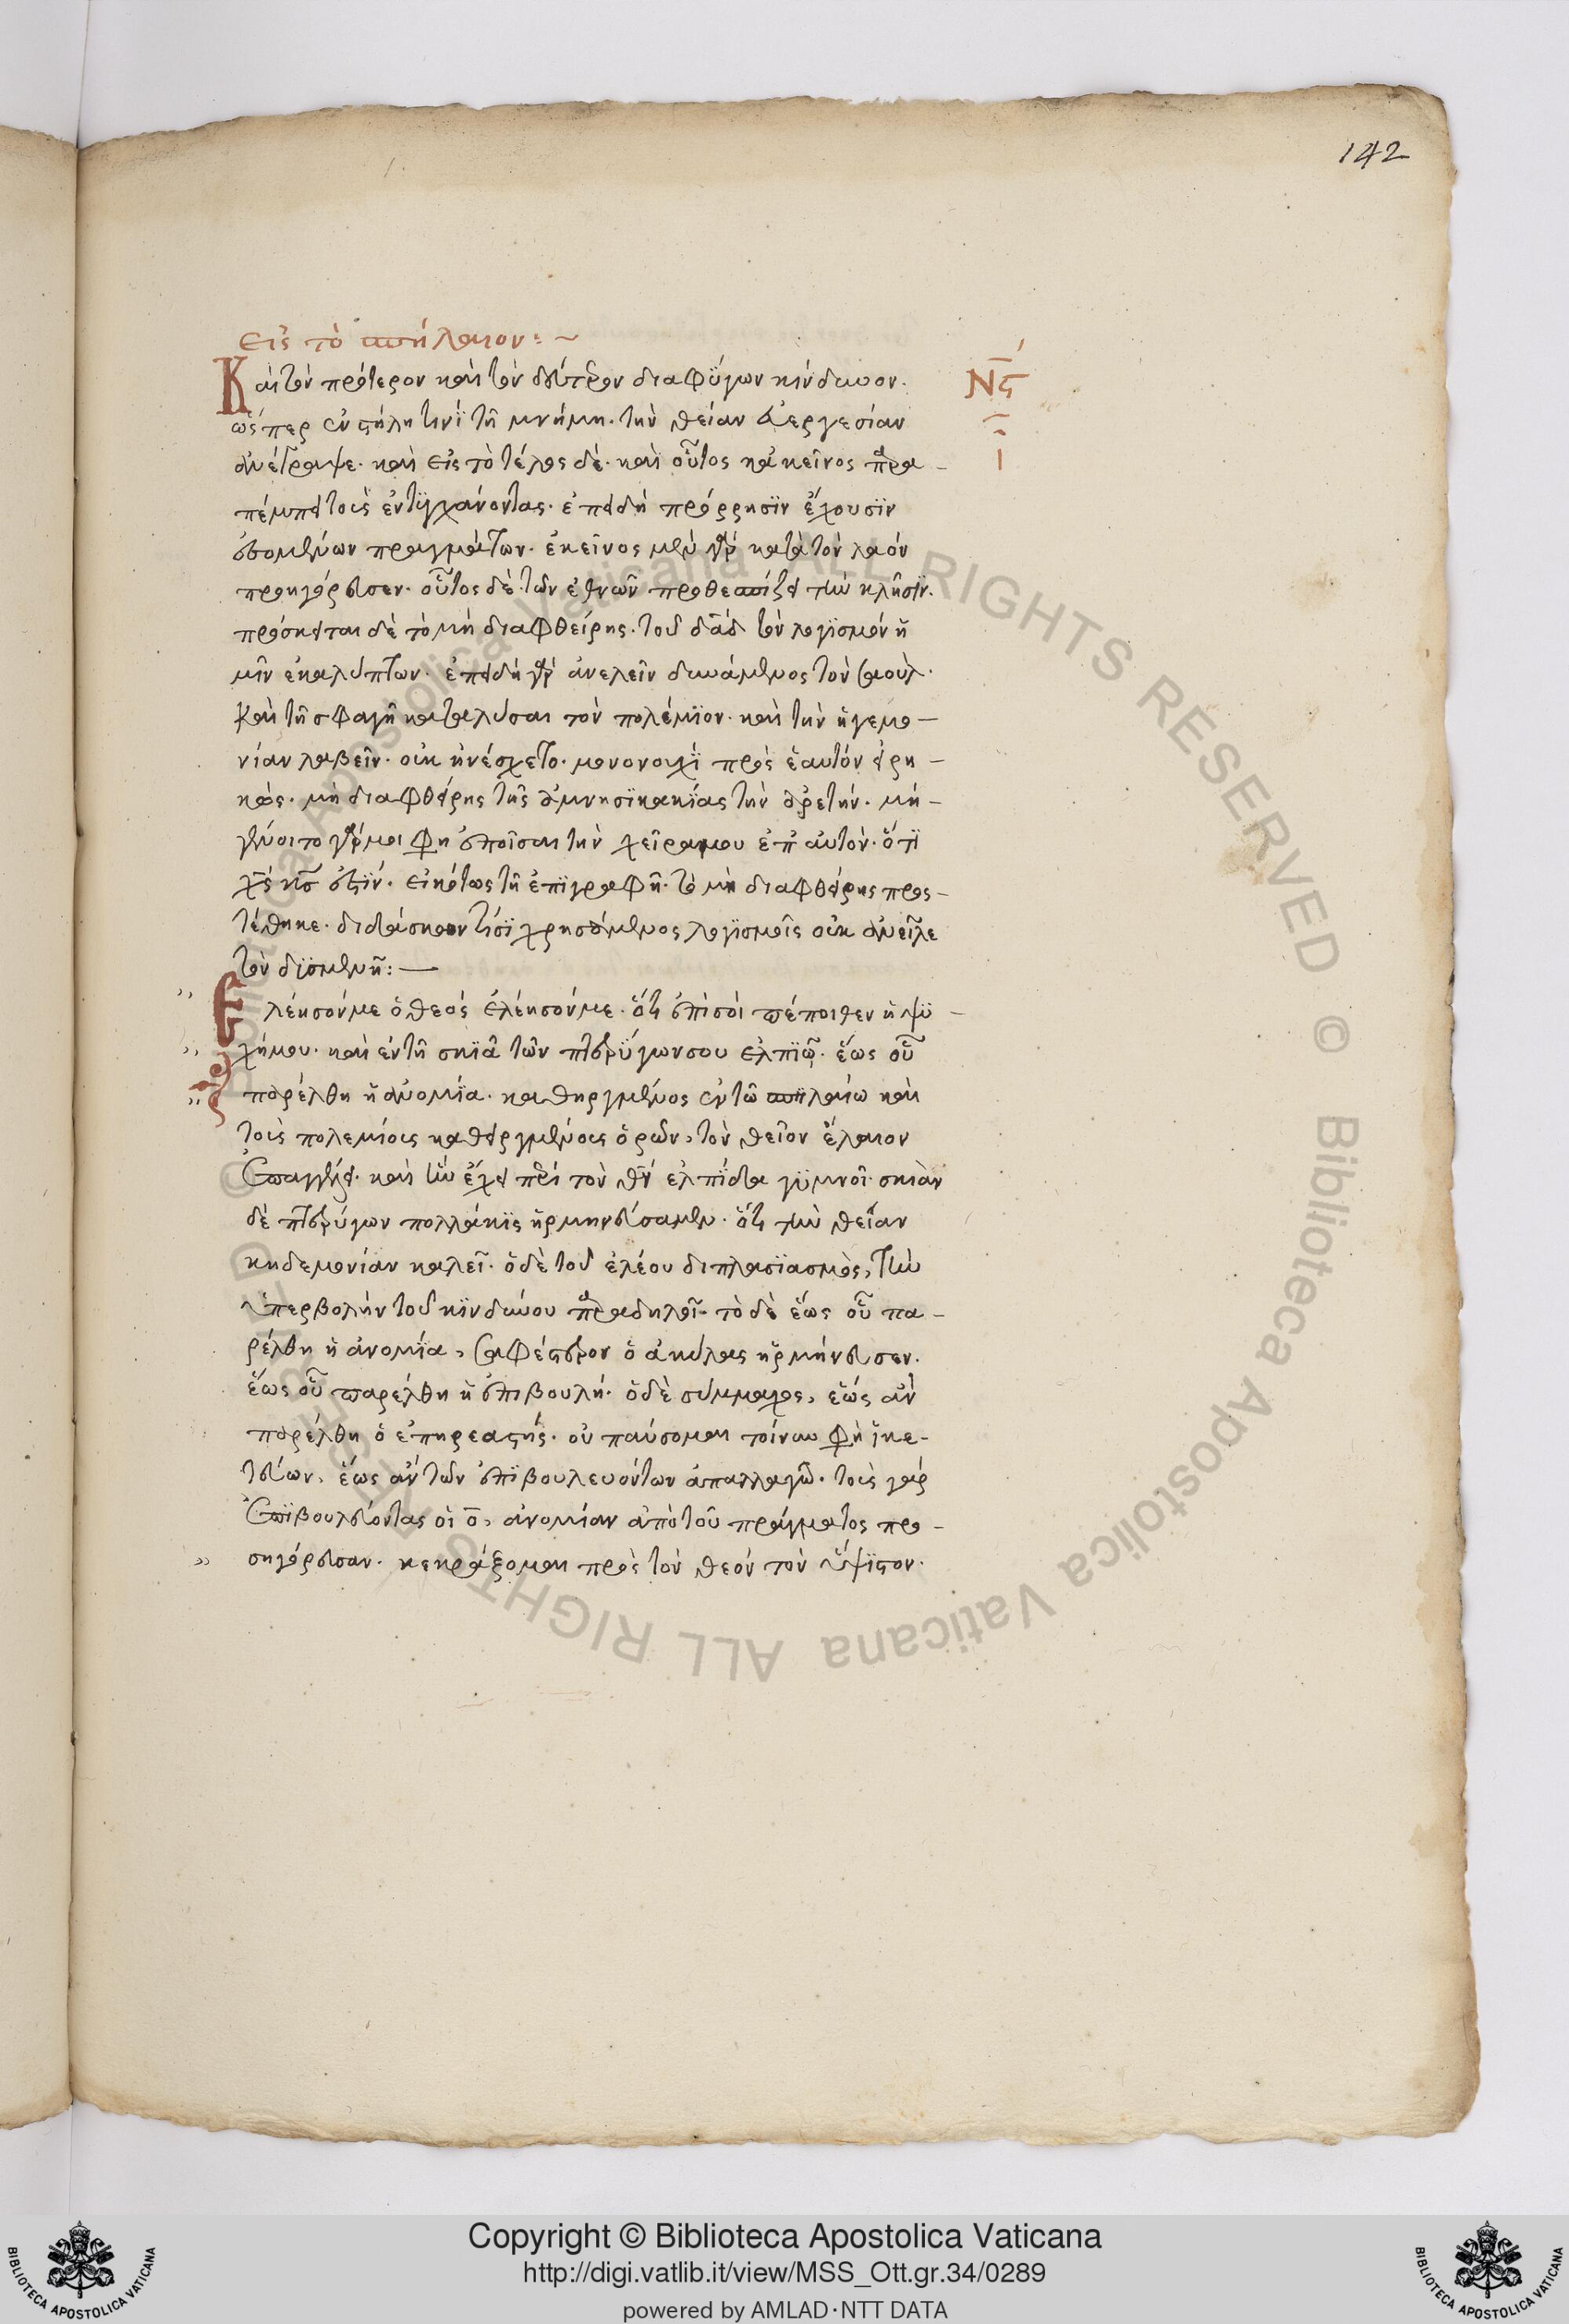 142
εἰς τὸ σπήλαιον:~
Νς́
Καὶ τὸν πρότερον καὶ τὸν δεύτερον διαφϋγων κίνδυνον.
ὥσπερ ἐν στήλη τινῒ τῆ μνήμη. τὴν θείαν εὐεργεσίαν
ἀνέγραψε. καὶ εἰς τὸ τέλος δὲ. καὶ οὗτος κἀκεῖνος παρα-
πέμπει τοὺς ἐντϋγχάνοντας. ἐπειδὴ πρόρρησϊν ἔχουσϊν
ἐσομένων πραγμάτων. ἐκεῖνος μὲν γὰρ κατὰ τὸν λαόν
προηγόρευσεν. οὗτος δὲ τῶν ἐθνῶν προθεσπίζει τὴν κλῆσϊν.
πρόσκειται δὲ τὸ μὴ διαφθείρης. τοῦ δᾱδ τὸν λογϊσμόν ἡ
μῖν ἐκαλύπτων. ἐπειδὴ γὰρ ἀνελεῖν δυνάμενος τὸν σαούλ.
καὶ τῆ σφαγῆ καταλύσαι τὸν πολέμϊον. καὶ τὴν ἡγεμο-
νίαν λαβεῖν. οὐκ ἠνέσχετο. μονονουχῒ πρὸς ἑαυτόν εἰρη-
κὼς. μὴ διαφθείρης τῆς ἀμνησϊκακίας τὴν ἀρετήν. μὴ-
γένοιτο γάρ μοι φη ἐποῖσαι τὴν χεῖρα μου ἐπ αὐτὸν. ὅτϊ
χ̅ς̅ κ̅υ̅ ἐστϊν. εἰκότως τῆ ἐπϊγραφῆ. τὸ μὴ διαφθείρης προς-
τέθηκε. διδάσκον τίσϊ χρησάμενος λογϊσμοῖς οὐκ ἀνεῖλε
τὸν δϋσμενῆ:—
Ἐλέησόν με ὁ θεός ἐλέησόν με. ὅτι ἐπὶ σοὶ πέποιθεν ἡ ψϋ-
χή μου. καὶ ἐν τῆ σκϊᾶ τῶν πτερϋγων σου ἐλπϊῶ. ἕως οὗ
παρέλθη ἡ ἀνομϊα. καθηργμένος ἐν τῶ σπηλαίω καὶ
τοῖς πολεμίοις καθειργμένοις ὁρῶν, τὸν θεῖον ἔλαιον
ἐπαγγέλει. καὶ ἣν ἔχει περὶ τὸν θ̅ν̅ ἐλπϊδα γϋμνοῖ. σκιὰν
δὲ πτερύγων πολλάκϊς ἡρμηνεύσαμεν. ὅτι τὴν θείαν
κηδεμονίαν καλεῖ. ὁ δὲ τοῦ ἐλέου διπλασϊασμὸς, τὴν
ὑπερβολὴν τοῦ κϊνδύνου παραδηλοῖ. τὸ δὲ ἕως οὗ πα-
ρέλθη ἡ ἀνομϊα, σαφέστερον ὁ ἀκύλας ἡρμήνευσεν.
ἕως οὗ παρέλθη ἡ ἐπιβουλή. ὁ δὲ σύμμαχος, ἕως ἂν
παρέλθη ὁ ἐπηρεαστής. οὐ παύσομαι τοίνυν φὴ ἱκε-
τεύων, ἕως ἂν τῶν ἐπϊβουλευόντων ἀπαλλαγῶ. τοὺς γὰρ
ἐπϊβουλεύοντας οἱ ο̅, ἀνομίαν ἀπὸ τοῦ πράγματος προ-
σηγόρευσαν. κεκράξομαι πρὸς τὸν θεόν τὸν ὕψϊστον.
Copyright © Biblioteca Apostolica Vaticana
http://digi.vatlib.it/view/MSS_Ott.gr.34/0289
powered by AMLAD·NTT DATA
BIBLIOTECA APOSTOLICA VATICANA
BIBLIOTECA APOSTOLICA VATICANA